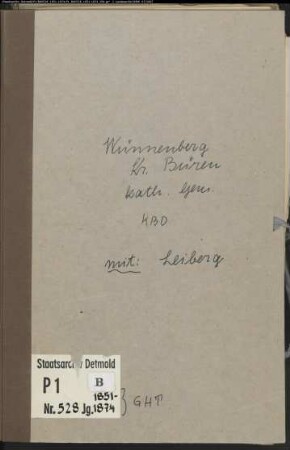 Wünnenberg
Kr. Büren
kath. Gem.
KBD
mit: Leiberg
Staatsarchiv Detmold
P1
B
1851-
Nr. 528 Jg. 1874
GHT